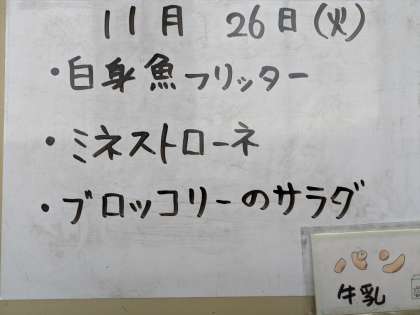 11月 26日(火)
・白身魚フリッター
・ミネストローネ
・ブロッコリーのサラダ
パン
牛乳